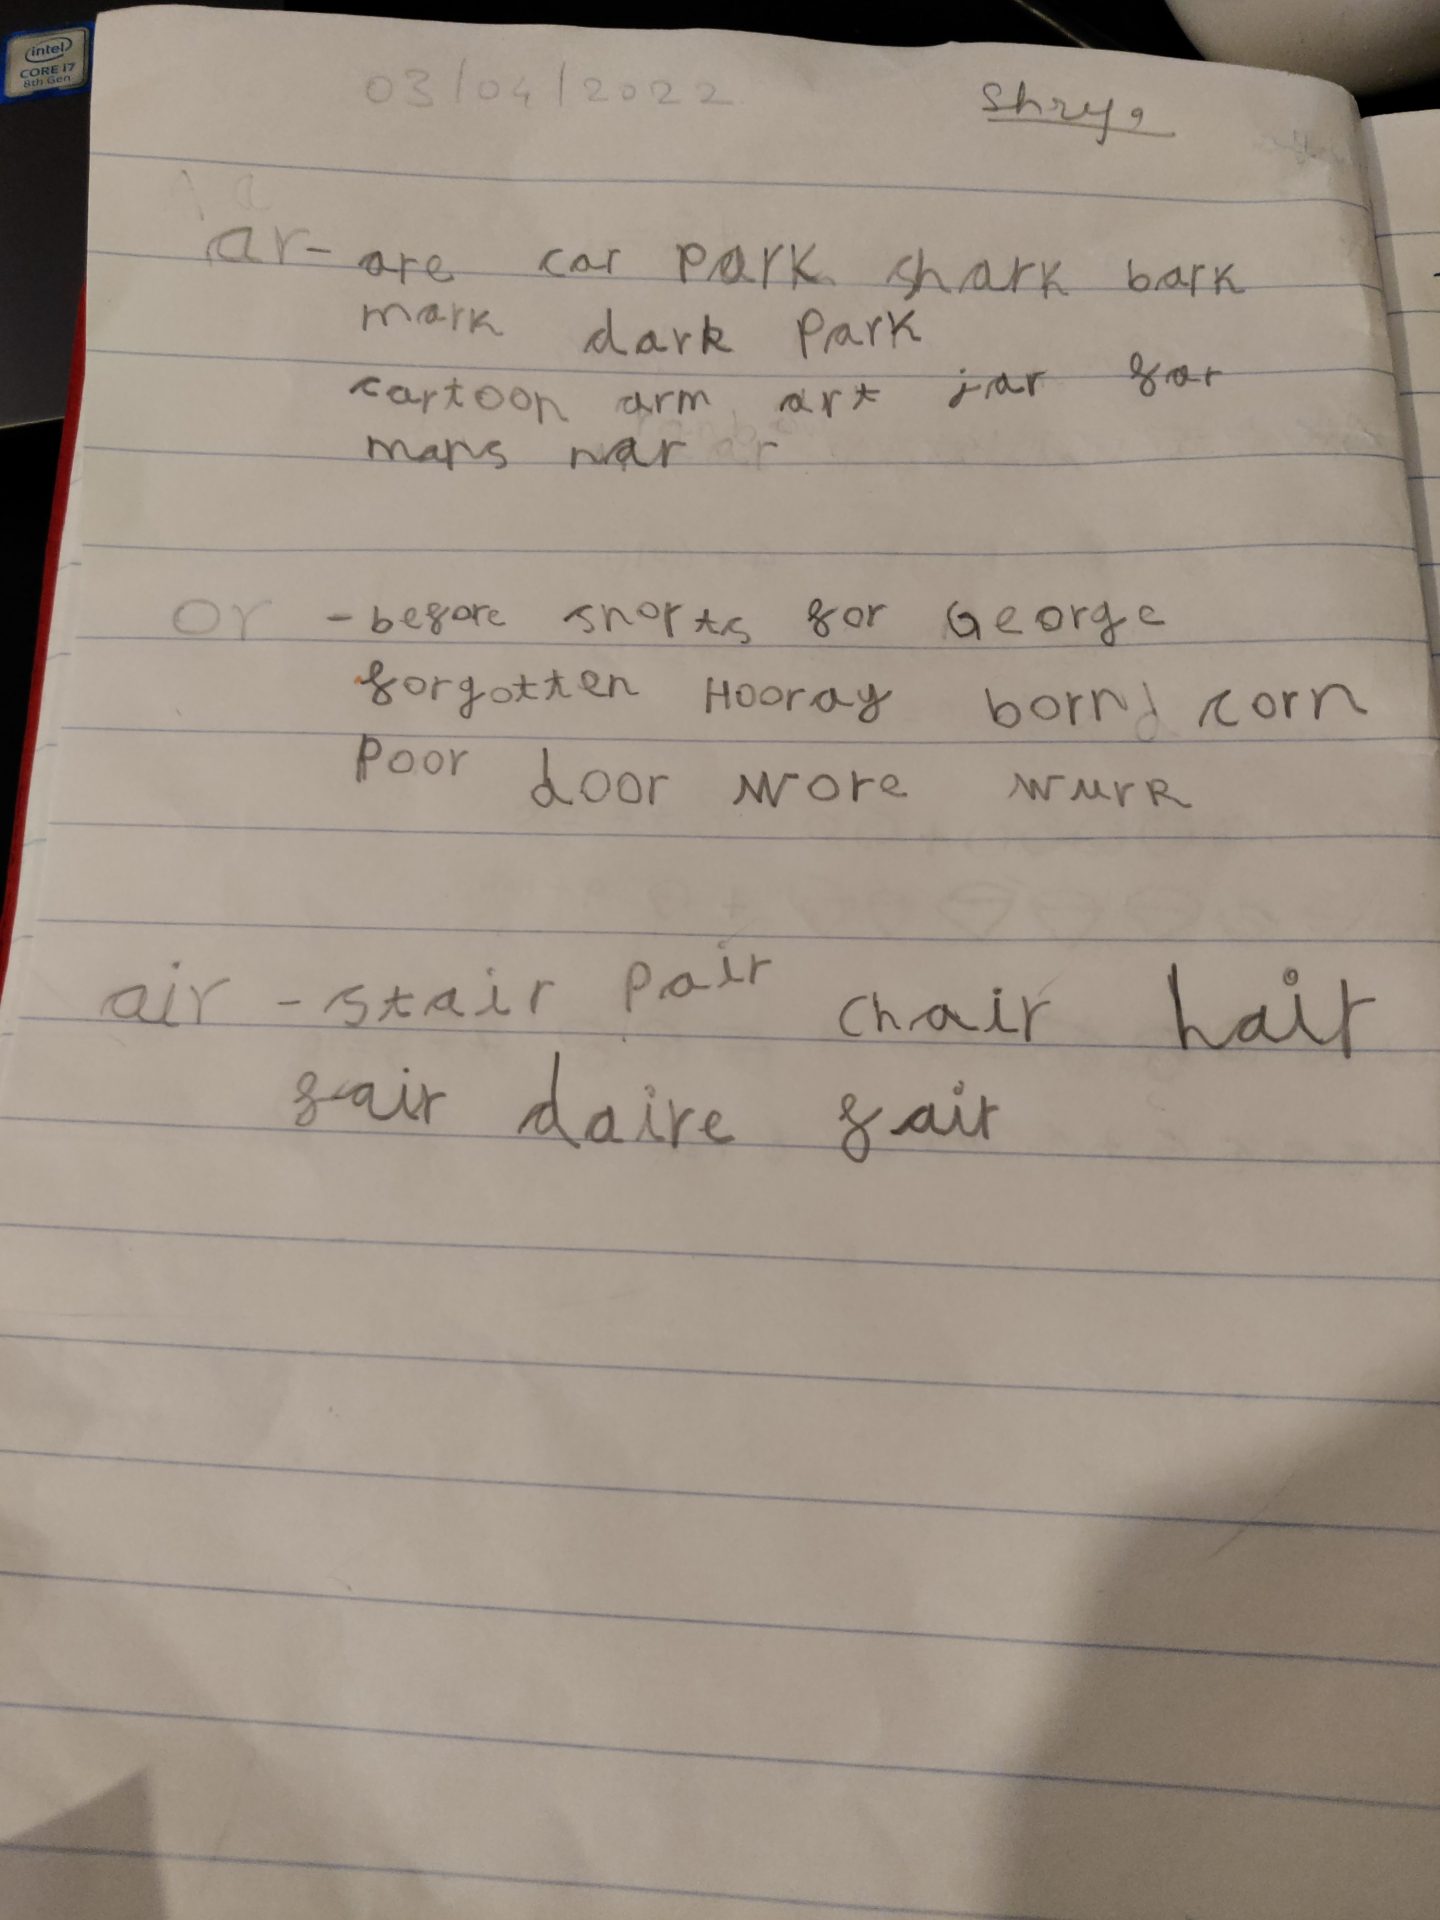 intel
CORE i7
8th Gen
03/04/2022 Shrya
ar- are car park shark bark
mark dark park
cartoon arm art jar far
mars
or - before snorts for George
forgotten Hooray born corn
poor door wore wurk
air - stair pair chair hair
fair daire fair